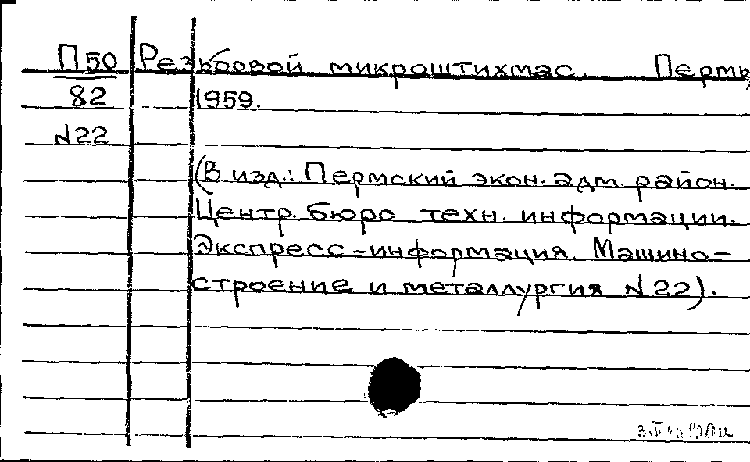 П50 Резьбовой микроштихмас. Пермь,
82 1959.
№22
(В изд.: Пермский экон. адм. район.
Центр. бюро техн. информации.
Экспресс-информация. Машино-
строение и металлургия №22).